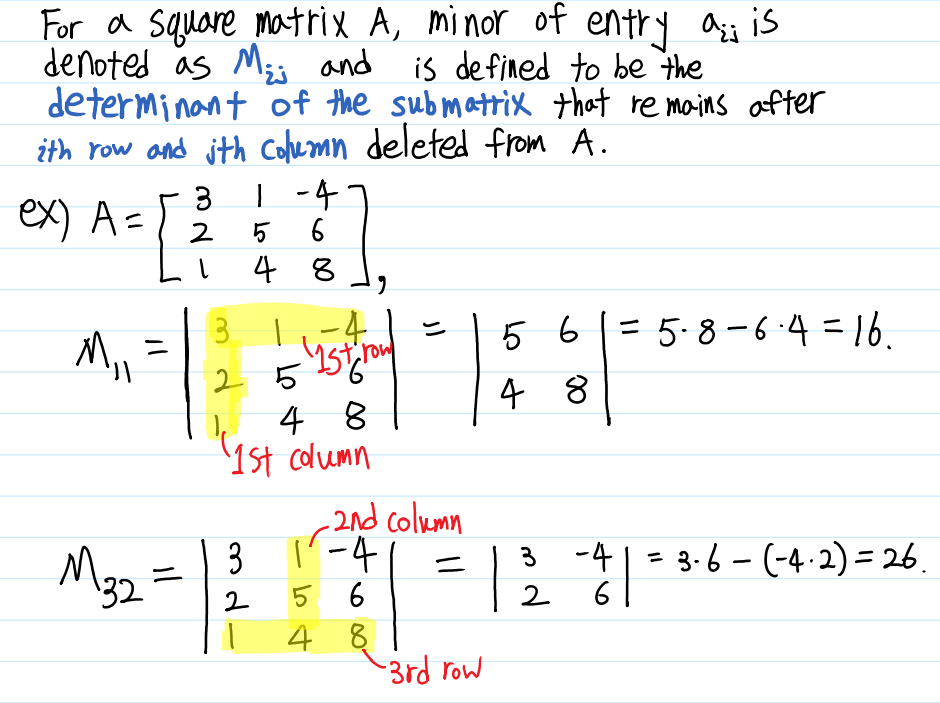 For a square matrix A, minor of entry aij is
denoted as Mij and is defined to be the
determinant of the submatrix that remains after
ith row and jth column deleted from A.
ex) A = [ 3 1 -4
2 5 6
1 4 8 ],
M11 = | 3 1 -4 | = | 5 6 | = 5·8 - 6·4 = 16.
1st row
2 5 6 4 8
1 4 8
1st column
2nd column
M32 = | 3 1 -4 | = | 3 -4 | = 3·6 - (-4·2) = 26.
2 5 6 2 6
1 4 8
3rd row